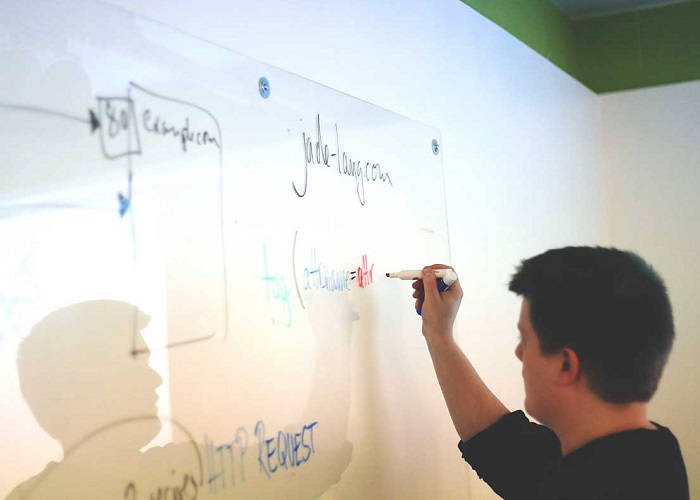 80 example.com
jade-lang.com
tag (attr name=attr
HTTP REQUEST